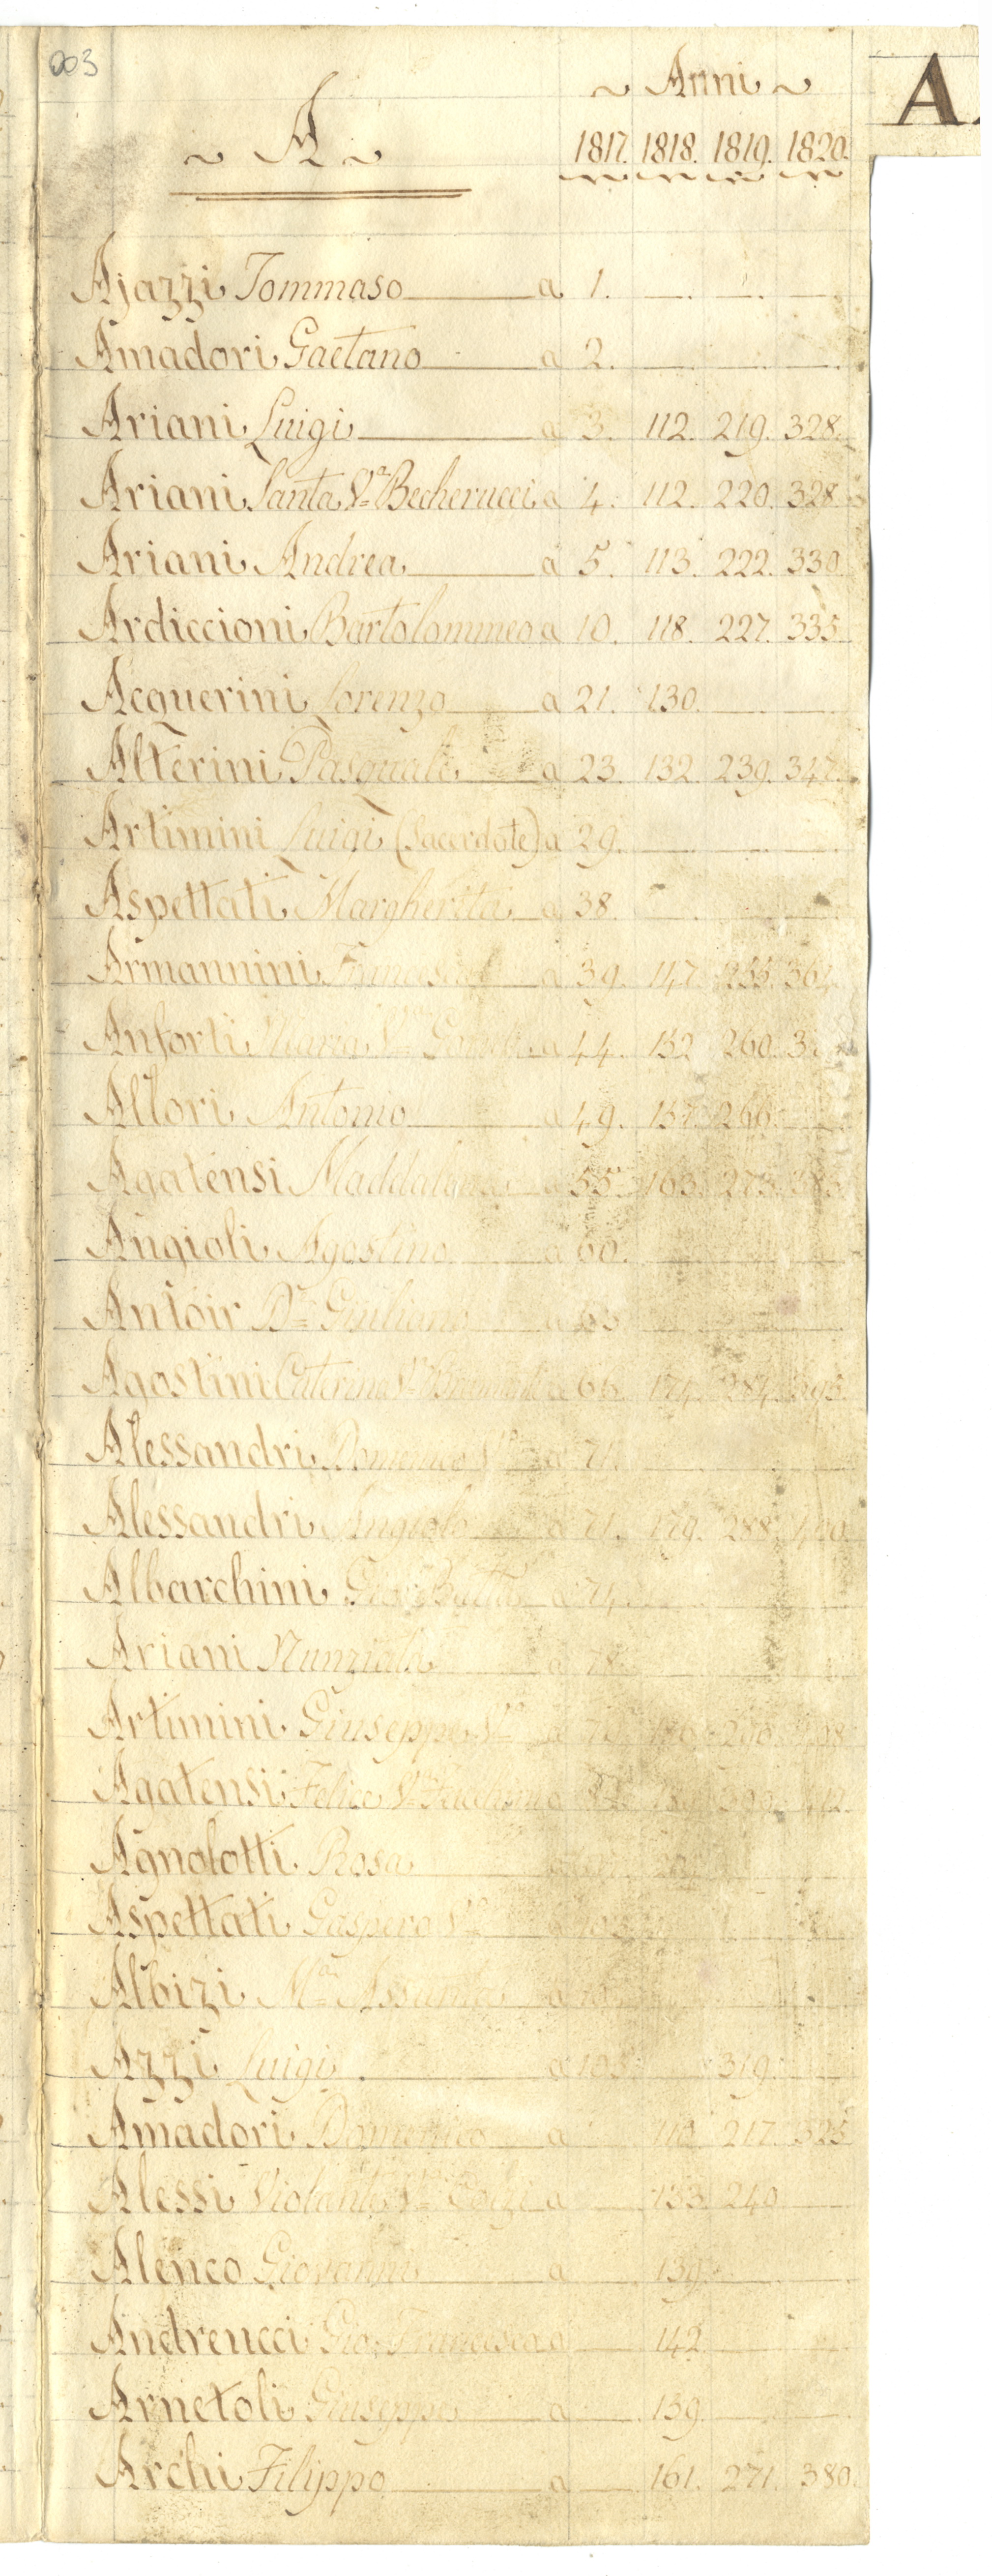 003
A.
~ Anni ~
~ A ~
1817. 1818. 1819. 1820.
Ajazzi Tommaso a 1.
Amadori Gaetano a 2.
Ariani Luigi a 3. 112. 219. 328.
Ariani Santa Va Becherucci a 4. 112. 220. 328.
Ariani Andrea a 5. 113. 222. 330.
Ardiccioni Bartolommeo a 10. 118. 227. 335.
Acquerini Lorenzo a 21. 130.
Alterini Pasquale a 23. 132. 239. 347.
Artimini Luigi (Sacerdote) a 29.
Aspettati Margherita a 38.
Armannini a 39. 147. 255. 364.
Anforti Maria Va a 44. 152 260.
Allori Antonio a 49. 157. 266.
Agatensi Maddalena a 55. 163. 273.
Angioli Agostino a 60.
Antoir Dr Giuliano a
Agostini Caterina Va a 66. 174. 284.
Alessandri Domenico a 71.
Alessandri Angiolo a 71. 179. 288.
Albarchini Gio: Batta a 74.
Ariani Nunziata a 78.
Artimini Giuseppe a
Agatensi Felice Va
Agnolotti Rosa
Aspettati Gaspero
Albizi Ma Assunta a
Azzi Luigi a 105. 319.
Amadori Domenico a 110. 217. 325.
Alessi Violante Va a 133. 240.
Alenco Giovanni a 139.
Andreucci Gio: Francesco a 142.
Arnetoli Giuseppe a 159.
Archi Filippo a 161. 271. 380.